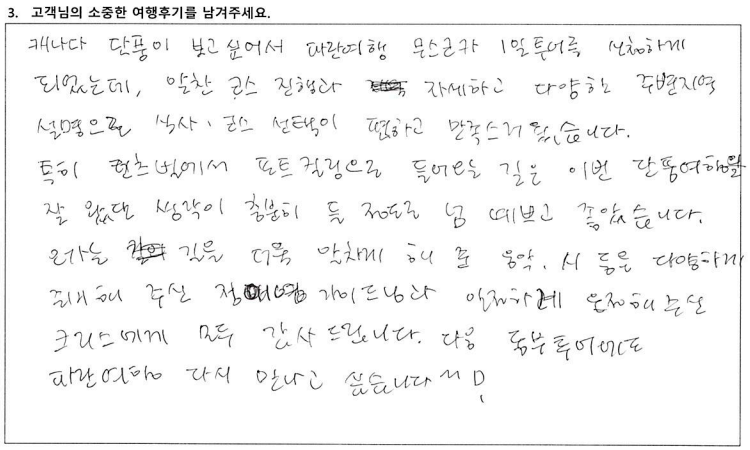 3. 고객님의 소중한 여행후기를 남겨주세요.
캐나다 단풍이 보고 싶어서 파란여행 무스코카 1일 투어를 신청하게
되었는데, 알찬 코스 진행과 자세하고 다양한 주변지역
설명으로 식사·코스 선택이 편하고 만족스러웠습니다.
특히 헌츠빌에서 포트 컬링으로 들어오는 길은 이번 단풍여행을
잘 왔단 생각이 충분히 들 정도로 넘 예쁘고 좋았습니다.
오가는 길을 더욱 알차게 해 준 음악, 시 등을 다양하게
준비해 주신 가이드님과 안전하게 운전해 주신
크리스에게 모두 감사드립니다. 다음 동부투어에도
파란여행 다시 만나고 싶습니다~!